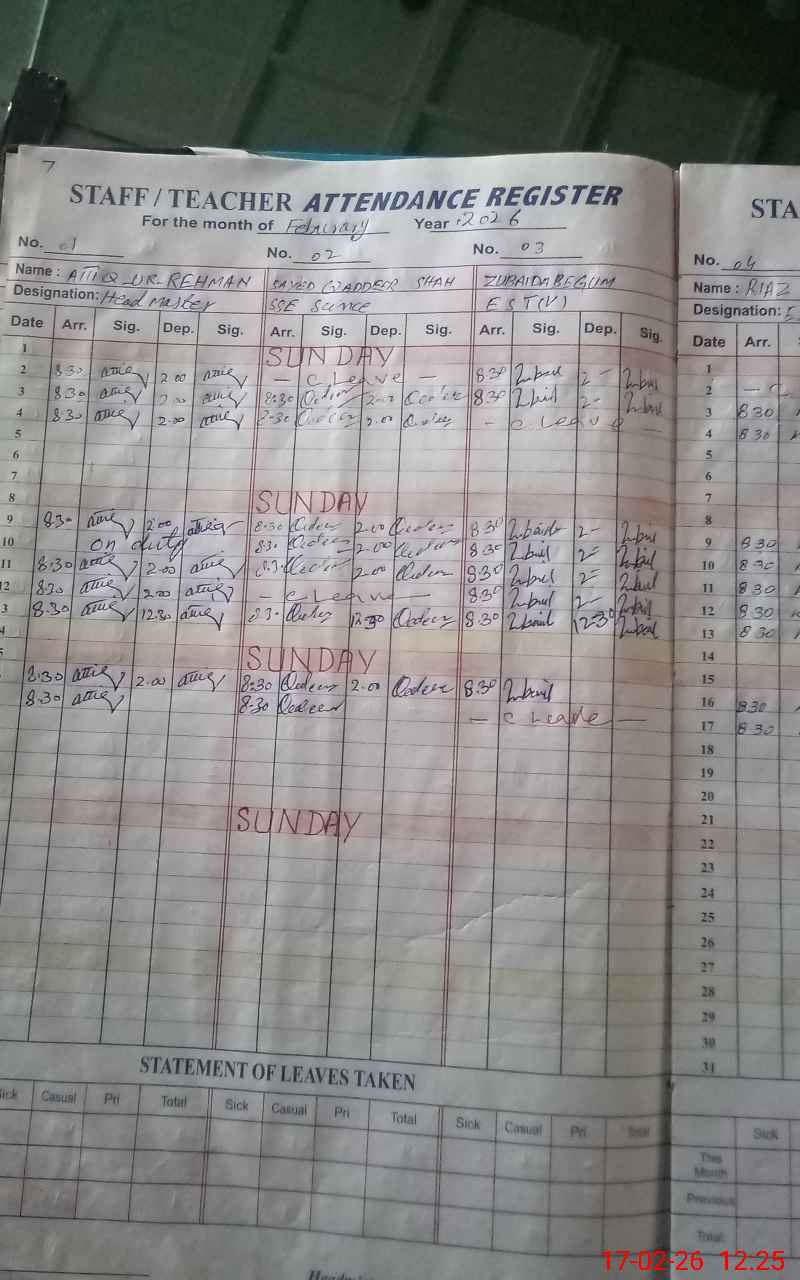 7
STAFF / TEACHER ATTENDANCE REGISTER
For the month of February Year 2026
No. 01 No. 02 No. 03
Name : ATTIQ_UR_REHMAN SAYED QADDEER SHAH ZUBAIDA BEGUM
Designation: Head Master SSE EST(V)
Date Arr. Sig. Dep. Sig. Arr. Sig. Dep. Sig. Arr. Sig. Dep. Sig.
1 SUNDAY
2 8.30 attiq 2.00 attiq - C Leave - 8.30 2-
3 8.30 attiq 2.00 attiq 8:30 Qadeer 2.00 Qadeer 8.30 2-
4 8.30 attiq 2.00 attiq 8.30 Qadeer 2.00 Qadeer - C Leave -
5
6
7
8 SUNDAY
9 8.30 attiq 2.00 attiq 8.30 Qadeer 2.00 Qadeer 8.30 2-
10 on duty 8.30 Qadeer 2.00 Qadeer 8.30 2-
11 8.30 attiq 2.00 attiq 8.3 Qadeer 2.00 Qadeer 8.30 2-
12 8.30 attiq 2.00 attiq - C Leave - 8.30 2-
3 8.30 attiq 12.30 attiq 8.3 Qadeer 12.30 Qadeer 8.30 12-30
4
5 SUNDAY
8.30 attiq 2.00 attiq 8.30 Qadeer 2.00 Qadeer 8.30
8.30 attiq 8.30 Qadeer - C Leave -
SUNDAY
STATEMENT OF LEAVES TAKEN
Sick Casual Pri Total Sick Casual Pri Total Sick Casual Pri Total
STA
No. 04
Name : RIAZ
Designation:
Date Arr.
1
2 - C
3 8 30
4 8 30
5
6
7
8
9 8 30
10 8 30
11 8 30
12 8 30
13 8 30
14
15
16 830
17 8 30
18
19
20
21
22
23
24
25
26
27
28
29
30
31
Sick
This Month
Previous
Total
17-02-26 12:25